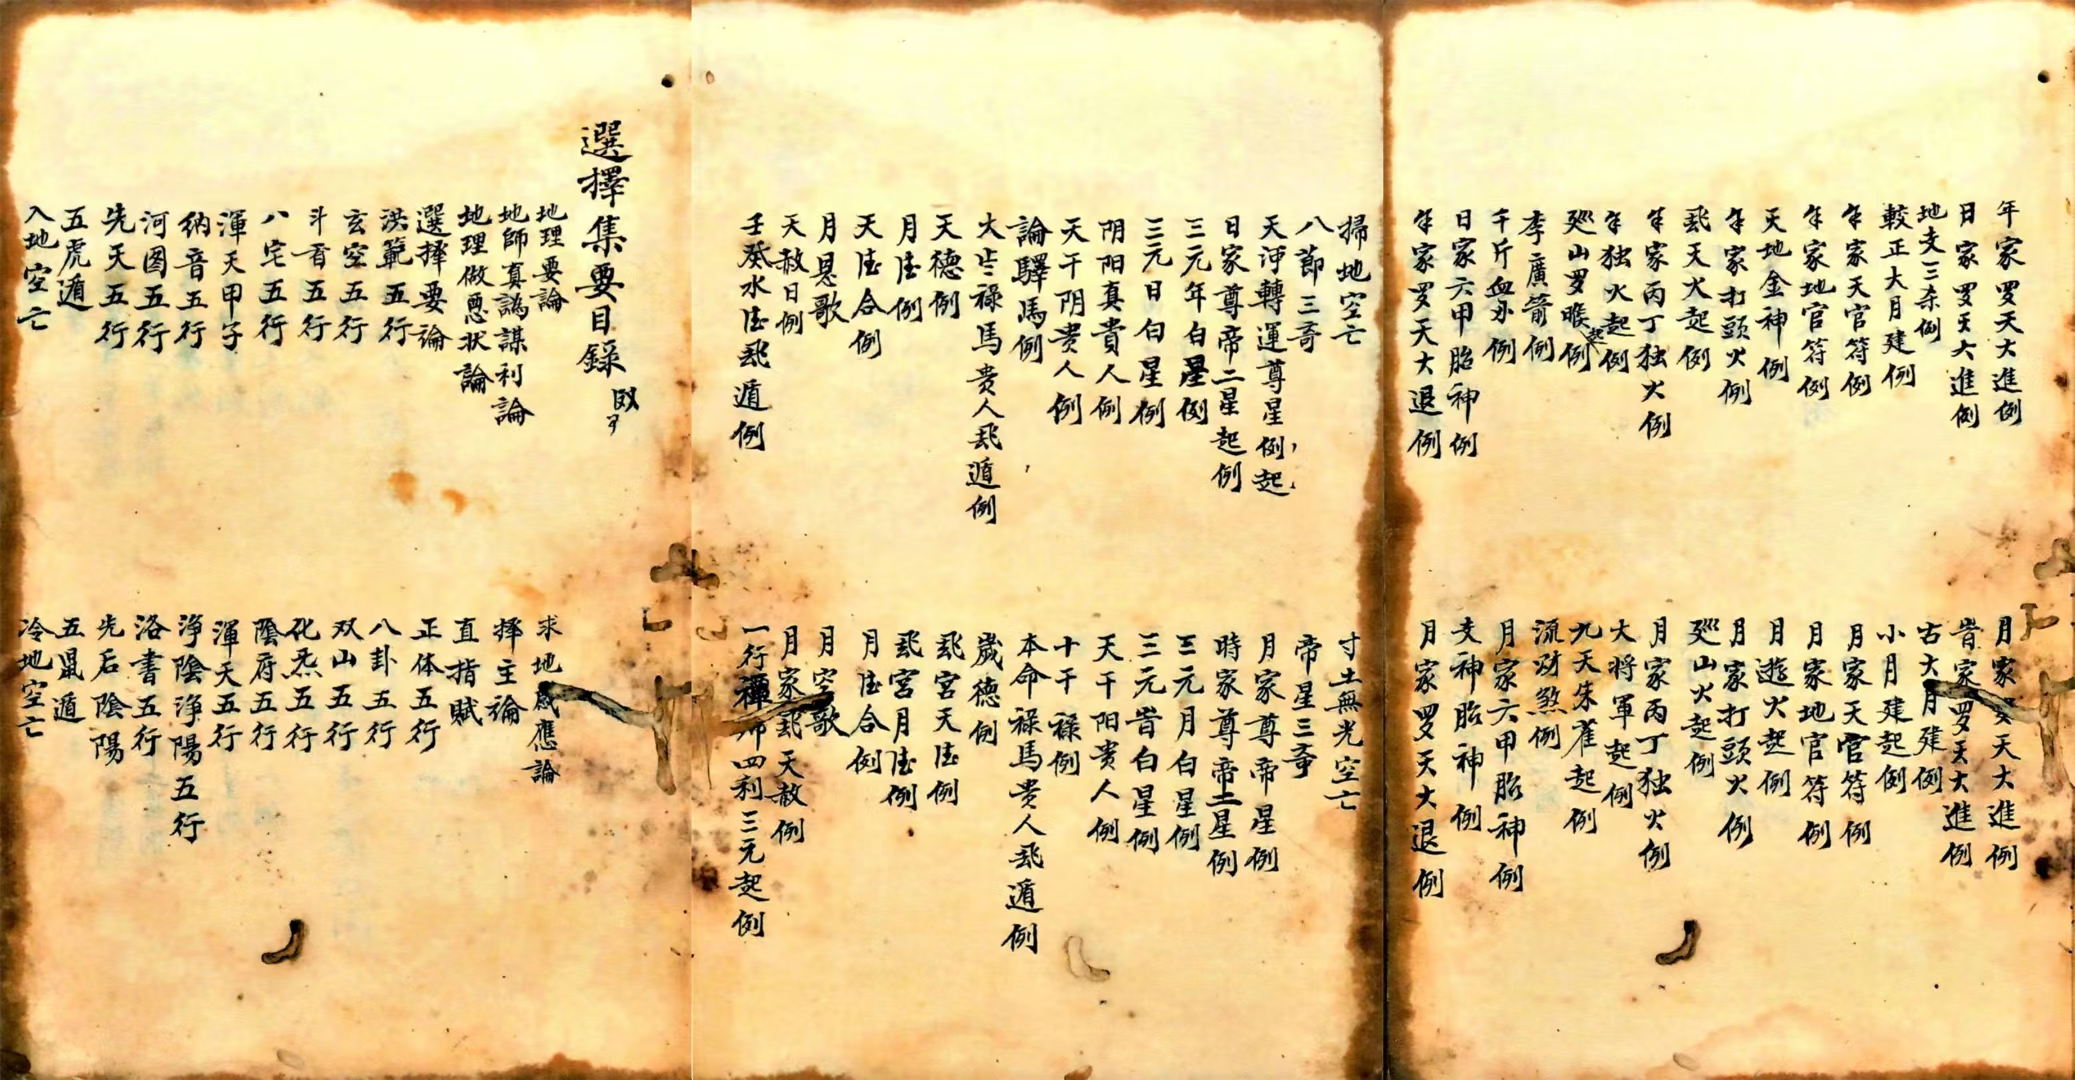 選擇集要目錄
地理要論
求地感應論
地師真譌謀利論
擇主論
地理做惡状論
直指賦
選擇要論
正体五行
洪範五行
八卦五行
玄空五行
双山五行
斗首五行
化炁五行
八宅五行
陰府五行
渾天甲子
渾天五行
纳音五行
淨陰淨陽五行
河图五行
洛書五行
先天五行
先后陰陽
五虎遁
五鼠遁
入地空亡
冷地空亡
掃地空亡
寸土無光空亡
八節三奇
帝星三奇
天河轉運尊星例起
月家尊帝星例
日家尊帝二星起例
時家尊帝二星例
三元年白星例
三元月白星例
三元日白星例
三元旹白星例
阴阳真貴人例
天干阳贵人例
天干阴贵人例
十干禄例
論驛馬例
本命禄馬贵人飛遁例
太歲禄馬贵人飛遁例
歲德例
天德例
飛宮天德例
月德例
飛宮月德例
天德合例
月德合例
月恩歌
月空歌
天赦日例
月家飛天赦例
壬癸水德飛遁例
一行禪师四利三元起例
年家罗天大進例
月家罗天大進例
日家罗天大進例
旹家罗天大進例
地支三杀例
古大月建例
較正大月建例
小月建起例
年家天官符例
月家天官符例
年家地官符例
月家地官符例
天地金神例
月遊火起例
年家打頭火例
月家打頭火例
飛天火起例
廵山火起例
年家丙丁独火例
月家丙丁独火例
年独火起例
大将軍起例
廵山罗睺起例
九天朱雀起例
李廣箭例
流财煞例
千斤血刃例
月家六甲胎神例
日家六甲胎神例
支神胎神例
年家罗天大退例
月家罗天大退例